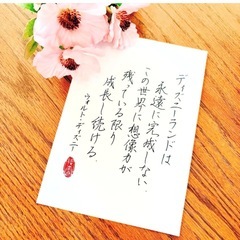 ディズニーランドは
永遠に完成しない
この世界に想像力が
残っている限り
成長し続ける。
ウォルト・ディズニー